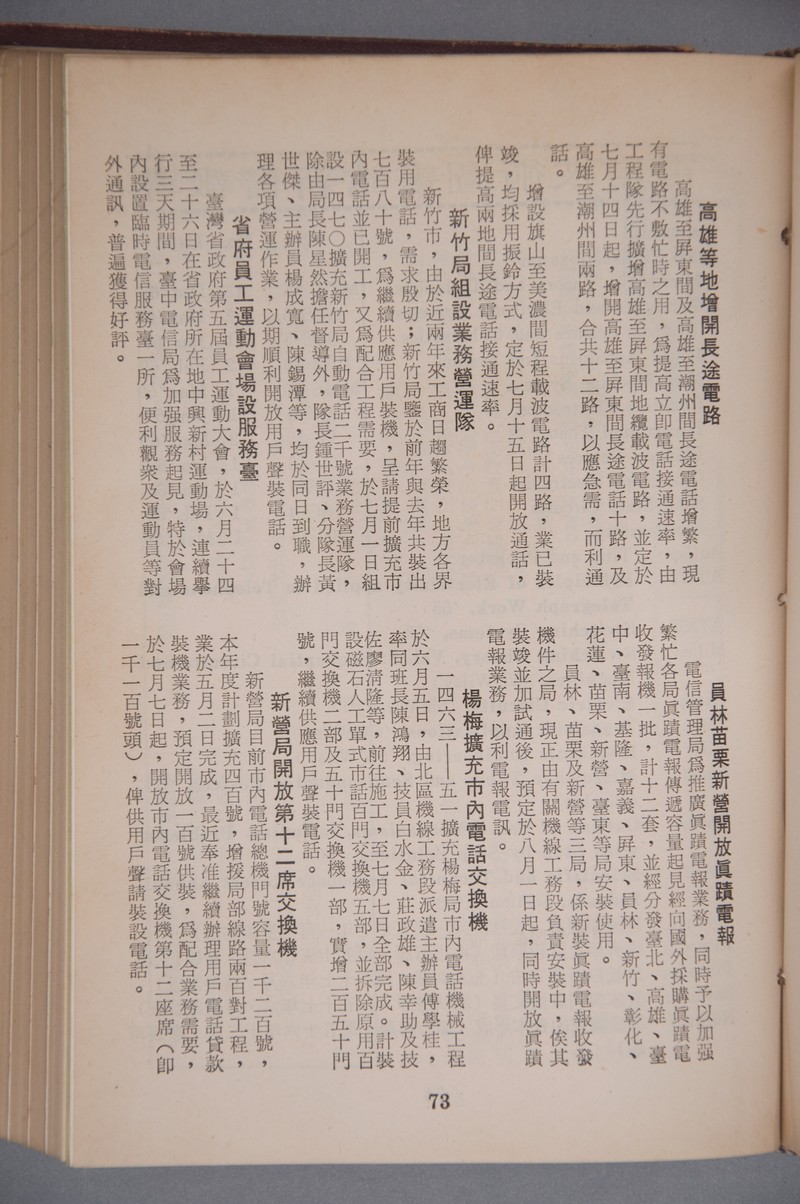 高雄等地增開長途電路
高雄至屏東間及高雄至潮州間長途電話增繁，現
有電路不敷忙時之用，爲提高立卽電話接通速率，由
工程隊先行擴增高雄至屏東間地纜載波電路，並定於
七月十四日起，增開高雄至屏東間長途電話十路，及
高雄至潮州間兩路，合共十二路，以應急需，而利通
話。
增設旗山至美濃間短程載波電路計四路，業已裝
竣，均採用振鈴方式，定於七月十五日起開放通話，
俾提高兩地間長途電話接通速率。
新竹局組設業務營運隊
新竹市，由於近兩年來工商日趨繁榮，地方各界
裝用電話，需求殷切；新竹局鑒於前年與去年共裝出
七百八十號，爲繼續供應用戶裝機，呈請提前擴充市
內電話並已開工，又爲配合工程需要，於七月一日組
設一四七〇擴充新竹局自動電話二千號業務營運隊，
除由局長陳星然擔任督導外，隊長鍾世評、分隊長黃
世傑、主辦員楊成寬、陳錫潭等，均於同日到職，辦
理各項營運作業，以期順利開放用戶聲裝電話。
省府員工運動會場設服務臺
臺灣省政府第五屆員工運動大會，於六月二十四
至二十六日在省政府所在地中興新村運動場，連續舉
行三天期間，臺中電信局爲加强服務起見，特於會場
內設置臨時電信服務臺一所，便利觀衆及運動員等對
外通訊，普遍獲得好評。
員林苗栗新營開放眞蹟電報
電信管理局爲推廣眞蹟電報業務，同時予以加强
繁忙各局眞蹟電報傳遞容量起見經向國外採購眞蹟電
收發報機一批，計十二套，並經分發臺北、高雄、臺
中、臺南、基隆、嘉義、屏東、員林、新竹、彰化、
花蓮、苗栗、新營、臺東等局安裝使用。
員林、苗栗及新營等三局，係新裝眞蹟電報收發
機件之局，現正由有關機線工務段負責安裝中，俟其
裝竣並加試通後，預定於八月一日起，同時開放眞蹟
電報業務，以利電報電訊。
楊梅擴充市內電話交換機
一四六三——五一擴充楊梅局市內電話機械工程
於六月五日，由北區機線工務段派遣主辦員傅學桂，
率同班長陳鴻翔、技員白水金、莊政雄、陳幸助及技
佐廖清隆等，前往施工，至七月七日全部完成。計裝
設磁石人工單式市話百門交換機五部，並拆除原用百
門交換機二部及五十門交換機一部，實增二百五十門
號，繼續供應用戶聲裝電話。
新營局開放第十二席交換機
新營局目前市內電話總機門號容量一千二百號，
本年度計劃擴充四百號，增援局部線路兩百對工程，
業於五月二日完成，最近奉准繼續辦理用戶電話貸款
裝機業務，預定開放一百號供裝，爲配合業務需要，
於七月七日起，開放市內電話交換機第十二座席（卽
一千一百號頭），俾供用戶聲請裝設電話。
73